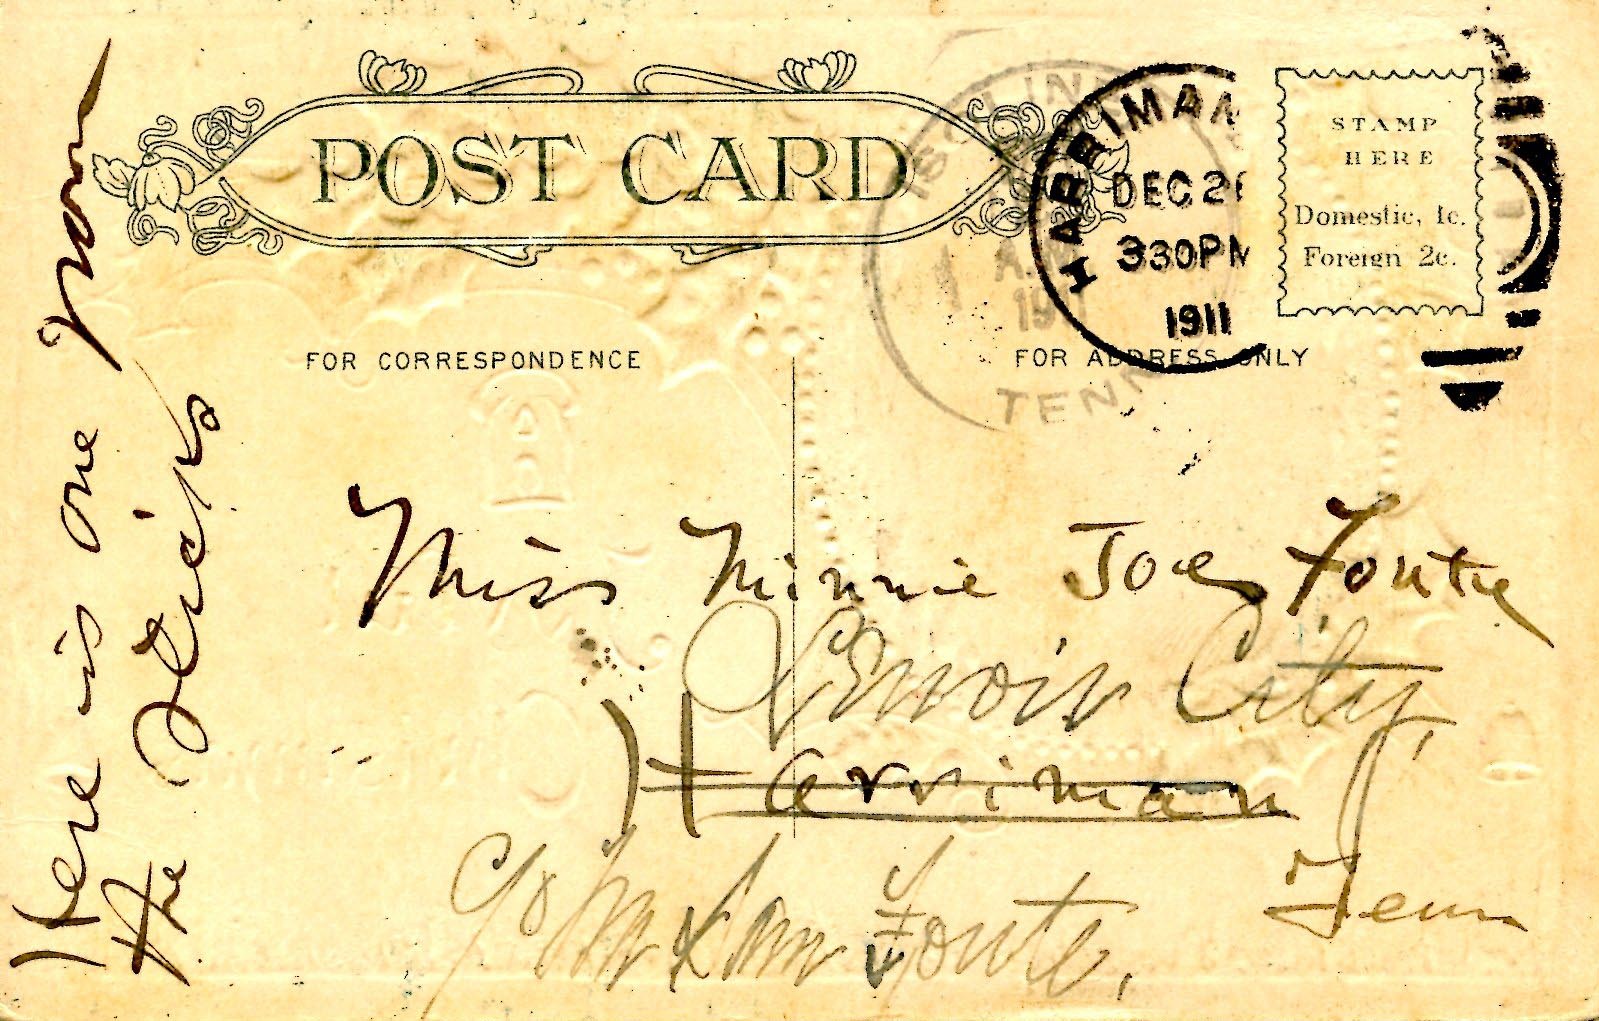 POST CARD
ISOLINE
A.M
191
TENN
HARRIMAN
DEC 2
330PM
1911
STAMP
HERE
Domestic, 1c.
Foreign 2c.
FOR CORRESPONDENCE
FOR ADDRESS ONLY
Here is one from
the
Miss Minnie Joe Foute
Lenoir City,
Harriman
Tenn
c/o Sam Foute,